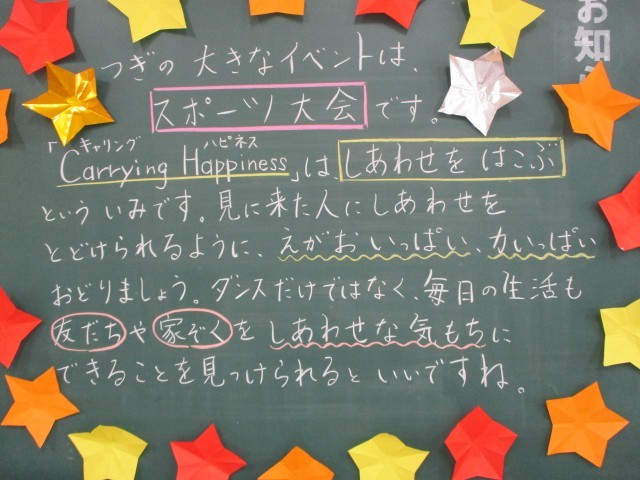 お知ら
つぎの 大きなイベントは、
スポーツ大会 です。
キャリング ハピネス
「Carrying Happiness」は、しあわせを はこぶ
という いみです。見に来た人に しあわせを
とどけられるように、えがお いっぱい、力いっぱい
おどりましょう。ダンスだけではなく、毎日の生活も
友だちや家ぞくを しあわせな気もちに
できることを見つけられると いいですね。